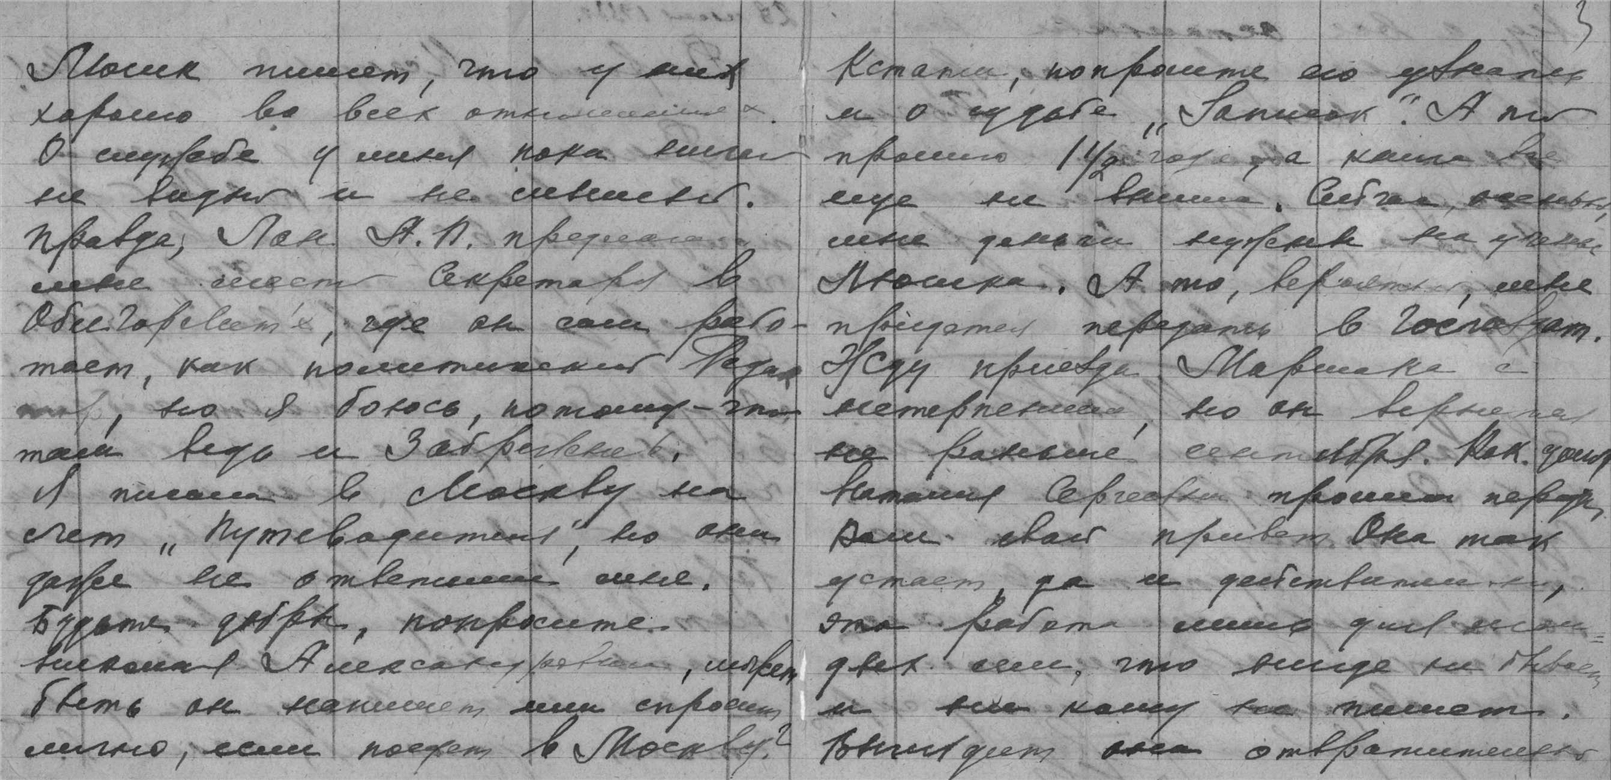 Мюлик пишет, что у них
хорошо во всех отношениях.
О службе у меня пока ничего
не видно и не слышно.
Правда, Лан А.П. предлагал
мне место Секретаря в
где он сам рабо-
тает, как политический Редак
тор, но я боюсь, потому-что
там ведь и Забрежнев.
Я писала в Москву на
счет „Путеводителя", но они
даже не ответили мне.
Будьте добры, попросите
Николая Александровича, может
быть он напишет или спросит
лично, если поедет в Москву?
3
Кстати, попросите его узнать
и о судьбе „Записок". А то
прошло 1 1/2 года, а книга все
еще не вышла. Сейчас, осенью,
мне деньги нужны на учение
Мюлика. А то, вероятно, мне
придется передать в Госиздат.
Жду приезда Маршака с
нетерпением, но он вернется
не раньше сентября. Как
Наталия Сергеевна просила передать
Вам свой привет. Она так
устает, да и действительно,
эта работа лишь для моло-
дых сил, что нигде не бывает
и ни кому не пишет.
Выглядит она отвратительно